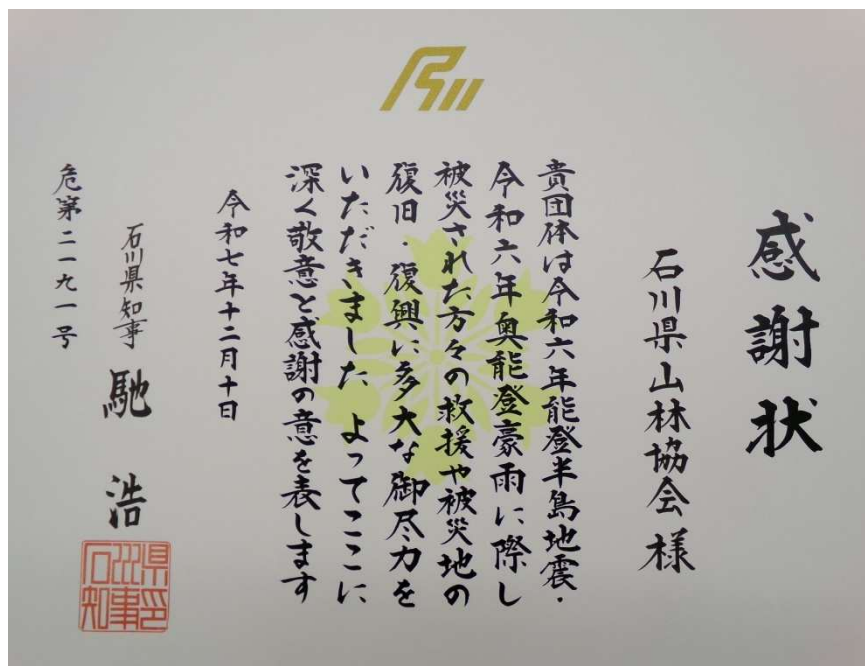 感謝状
石川県山林協会 様
貴団体は令和六年能登半島地震・
令和六年奥能登豪雨に際し
被災された方々の救援や被災地の
復旧・復興に多大な御尽力を
いただきました よってここに
深く敬意と感謝の意を表します
令和七年十二月十日
石川県知事 馳 浩
県印
川事
石知
危第二一九一号